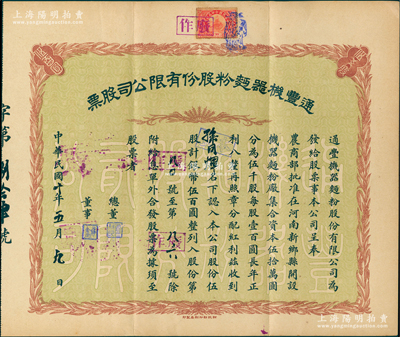 上海陽明拍賣
作廢
通豐機器麵粉股份有限公司股票
通豐機器麵粉股份有限公司為
發給股票事本公司呈奉
農商部批准在河南新鄉縣開設
機器麵粉廠集合資本伍拾萬圓
分為伍千股每股壹百圓長年正
利 釐再照章分配紅利茲收到
名下認入本公司股份伍
股計銀幣伍百圓整列股份第
號至第 號除
附給 單外合發股票為據須至
股票者
總董
董事
中華民國十年五月九日
字第 號
上海陽明拍賣